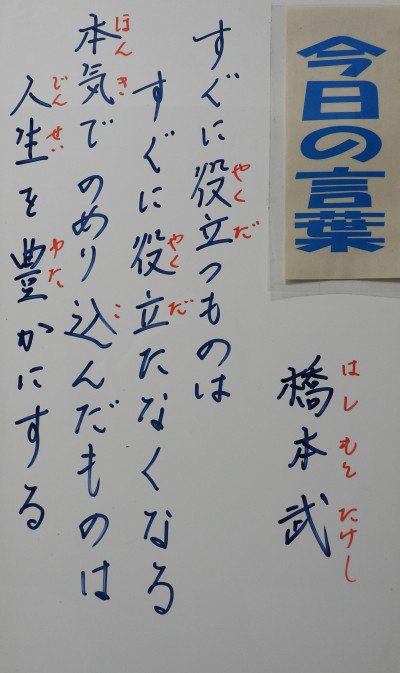 今日の言葉
すぐに役立つものは
やくだ
すぐに役立たなくなる
やくだ
本気でのめり込んだものは
ほんきこ
人生を豊かにする
じんせいゆた
橋本武
はしもとたけし